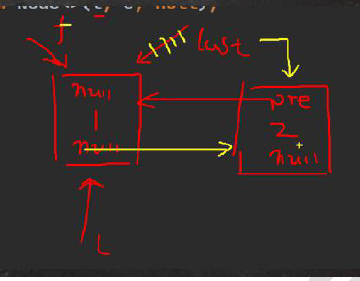 Node<>(l, e, null);
f
last
null
1
null
pre
2
null
L